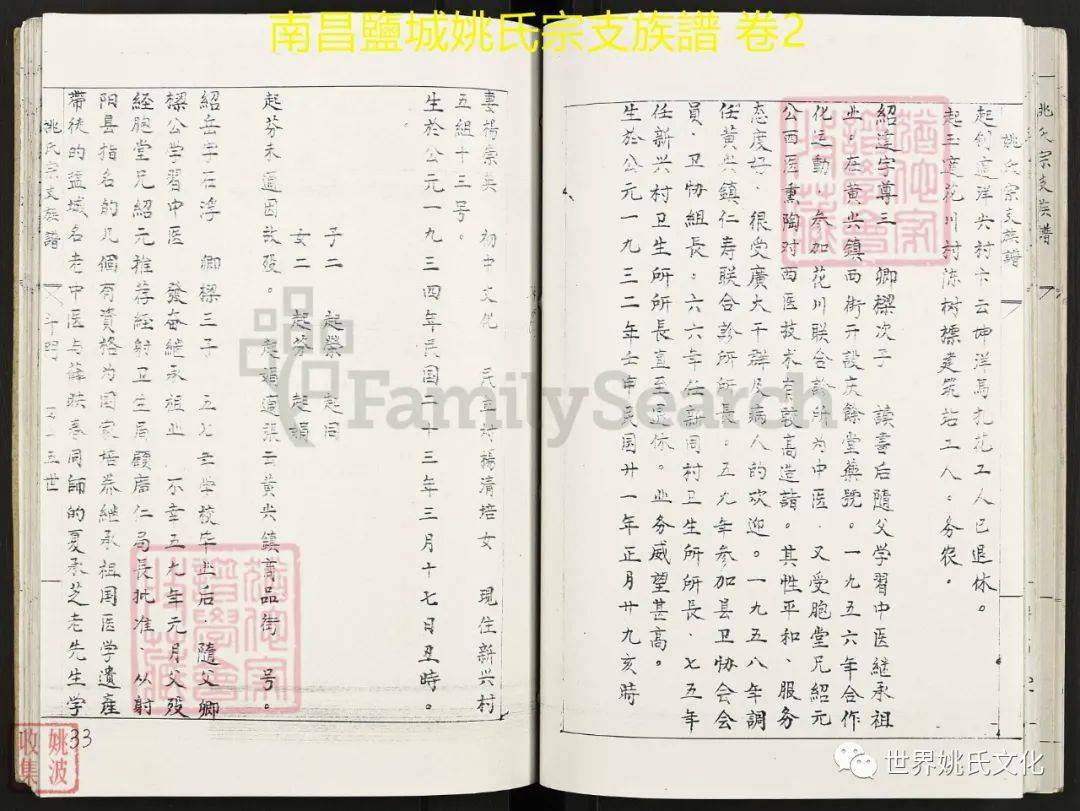 南昌鹽城姚氏宗支族譜 卷2
姚氏宗支族譜
姚氏宗支族譜
起創適洋興村卞云坤洋馬扎花工人已退休。
起玉適花川村陈树標建筑站工人。务农。
紹達字尊三 卿樑次子 讀書后隨父学習中医継承祖
业。在黄兴鎮西街开設庆餘堂藥號。一九五六年合作
化运動，参加花川联合診所为中医，又受胞堂兄紹元
公西医熏陶对西医技术有較高造詣。其性平和、服务
态度好，很受廣大干群及病人的欢迎。一九五八年調
任黄兴鎮仁寿联合診所所長。五九年参加县卫协会会
員，卫协組長。六六年任新同村卫生所所長、七五年
任新兴村卫生所所長直至退休。业务威望甚高。
生於公元一九三二年壬申民国廿一年正月廿九亥時
妻楊崇英 初中文化 民主村楊清培女 現住新兴村
五組十三号。
生於公元一九三四年民国二十三年三月十七日丑時。
子二 起榮 起同
女二 起芬 起娟
起芬未適因故殁。起娟適張云黄尖鎮商品街 号。
紹岳字石浮 卿樑三子 五七年学校毕业后，隨父卿
樑公学習中医 發奋継承祖业 不幸五九年元月父殁
経胞堂兄紹元推荐経射卫生局顧广仁局長批准、从射
阳县指名的几個有資格为国家培养継承祖国医学遺産
帶徒的盐城名老中医与薛映春同師的夏承芝老先生学
姚氏宗支族譜
世
33
姚波
收集
FamilySearch
世界姚氏文化